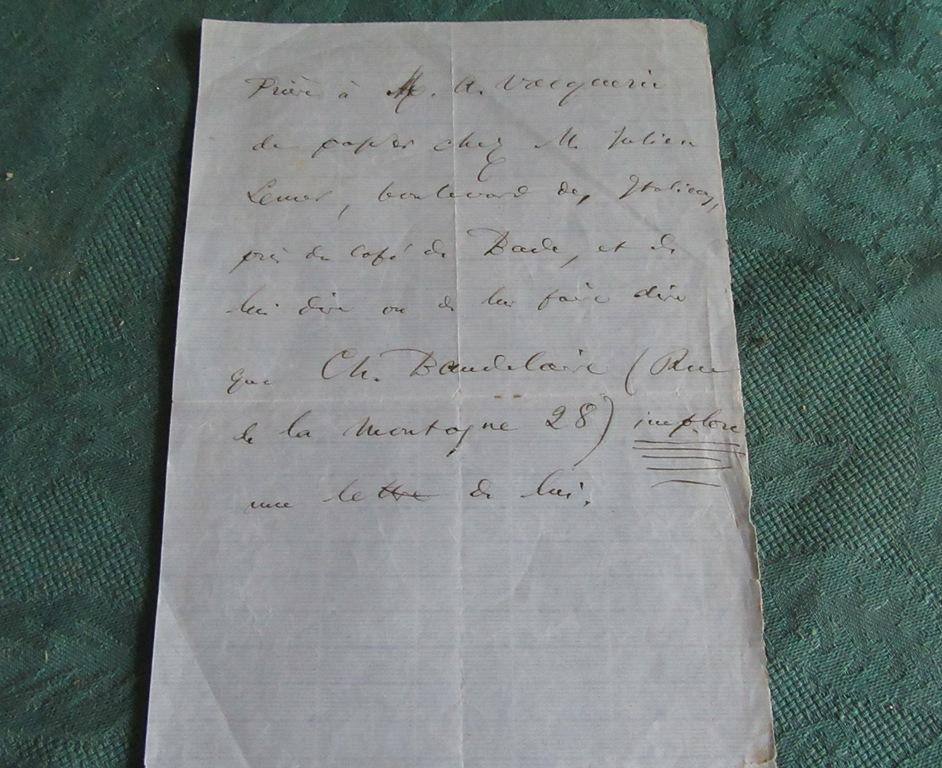 Prière à M. A. Vacquerie
de passer chez M. Julien
Lemer, boulevard des Italiens,
près du café de Bade, et de
lui dire ou de lui faire dire
que Ch. Baudelaire (Rue
de la Montagne 28) implore
une lettre de lui.